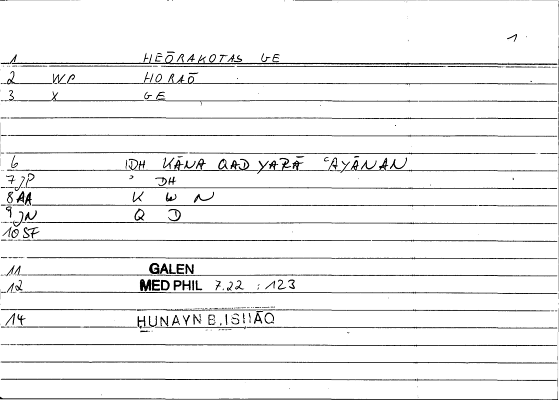 1
1 HEŌRAKOTAS GE
2 WP HORAŌ
3 X GE
6 IDH KĀNA QAD YARĀ ʿAYĀNAN
7 JP ʾ DH
8 AA K W N
9 JN Q D
10 SF
11 GALEN
12 MED PHIL 7.22 : 123
14 HUNAYN B.ISHĀQ